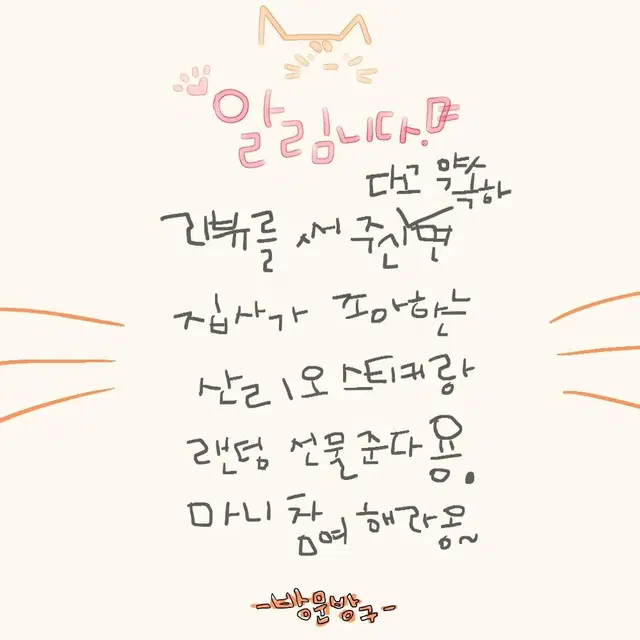 알립니다!
리뷰를 써 주신다고 약속하면
집사가 조아하는
산리오 스티커랑
랜덤 선물준다용.
마니 참여해라용~
-방문방구-